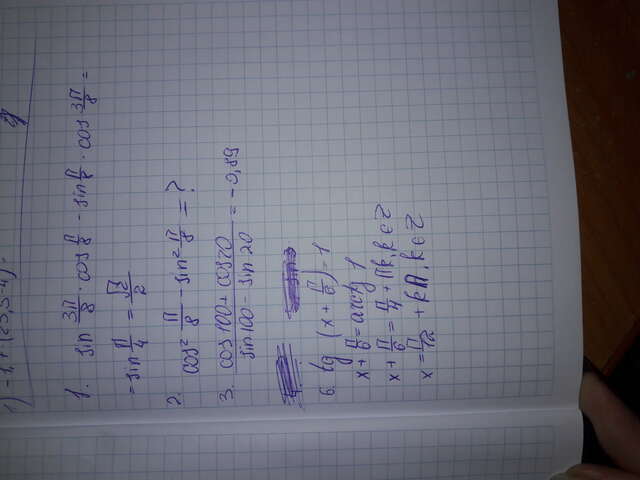 1. sin 3π/8 · cos π/8 - sin π/8 · cos 3π/8 =
= sin π/4 = √2/2
2. cos² π/8 - sin² π/8 = ?
3. (cos 100 + cos 20)/(sin 100 - sin 20) = -0,89
6. tg (x + π/6) = 1
x + π/6 = arctg 1
x + π/6 = π/4 + πk, k ∈ Z
x = π/12 + kπ, k ∈ Z